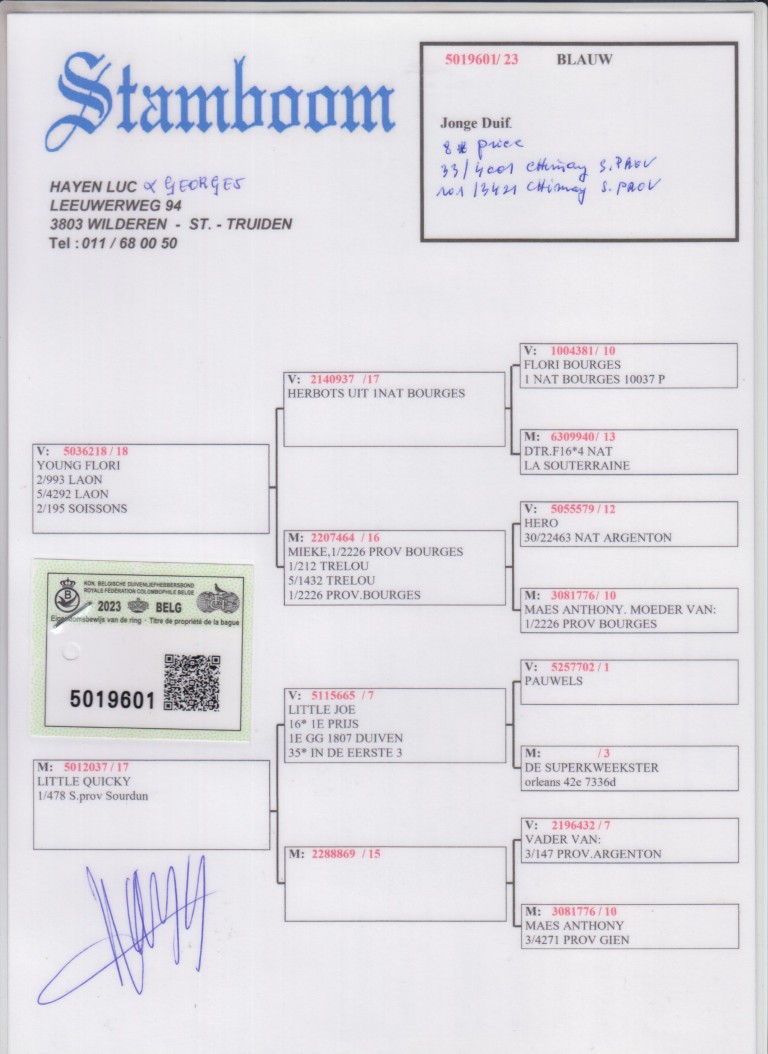 Stamboom
HAYEN LUC & GEORGES
LEEUWERWEG 94
3803 WILDEREN - ST. - TRUIDEN
Tel : 011 / 68 00 50
5019601/ 23 BLAUW
Jonge Duif.
8 * price
33/4001 CHimay S.PROV
101/3421 CHimay S.PROV
V: 5036218 / 18
YOUNG FLORI
2/993 LAON
5/4292 LAON
2/195 SOISSONS
V: 2140937 /17
HERBOTS UIT 1NAT BOURGES
V: 1004381/ 10
FLORI BOURGES
1 NAT BOURGES 10037 P
M: 6309940/ 13
DTR.F16*4 NAT
LA SOUTERRAINE
M: 2207464 / 16
MIEKE,1/2226 PROV BOURGES
1/212 TRELOU
5/1432 TRELOU
1/2226 PROV.BOURGES
V: 5055579 / 12
HERO
30/22463 NAT ARGENTON
M: 3081776/ 10
MAES ANTHONY. MOEDER VAN:
1/2226 PROV BOURGES
KON. BELGISCHE DUIVENLIEFHEBBERSBOND
ROYALE FÉDÉRATION COLOMBOPHILE BELGE
B
2023 BELG
Eigendomsbewijs van de ring - Titre de propriété de la bague
5019601
M: 5012037 / 17
LITTLE QUICKY
1/478 S.prov Sourdun
V: 5115665 / 7
LITTLE JOE
16* 1E PRIJS
1E GG 1807 DUIVEN
35* IN DE EERSTE 3
V: 5257702 / 1
PAUWELS
M: / 3
DE SUPERKWEEKSTER
orleans 42e 7336d
M: 2288869 / 15
V: 2196432 / 7
VADER VAN:
3/147 PROV.ARGENTON
M: 3081776 / 10
MAES ANTHONY
3/4271 PROV GIEN